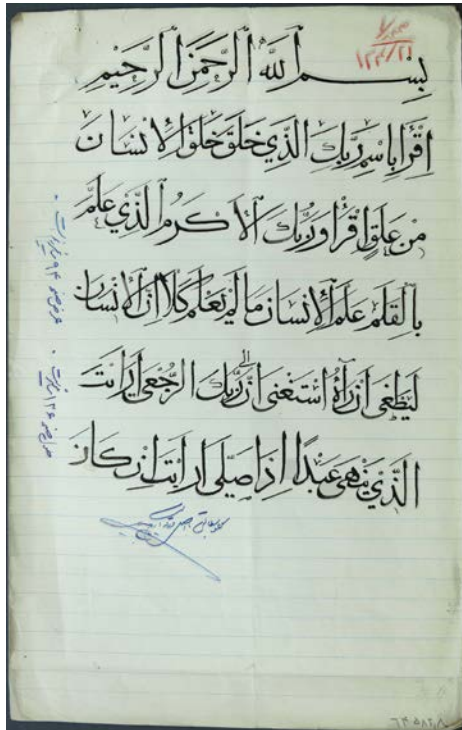 ٧/٢٣
١٢٤/٢١
بِسْمِ اللّٰهِ الرَّحْمٰنِ الرَّحِيْمِ
اِقْرَأْ بِاسْمِ رَبِّكَ الَّذِي خَلَقَ خَلَقَ الْاِنْسَانَ
مِنْ عَلَقٍ اِقْرَأْ وَرَبُّكَ الْاَكْرَمُ الَّذِي عَلَّمَ
بِالْقَلَمِ عَلَّمَ الْاِنْسَانَ مَا لَمْ يَعْلَمْ كَلَّا اِنَّ الْاِنْسَانَ
لَيَطْغٰى اَنْ رَآهُ اسْتَغْنٰى اِنَّ اِلٰى رَبِّكَ الرُّجْعٰى اَرَاَيْتَ
الَّذِي يَنْهٰى عَبْدًا اِذَا صَلّٰى اَرَاَيْتَ اِنْ كَانَ